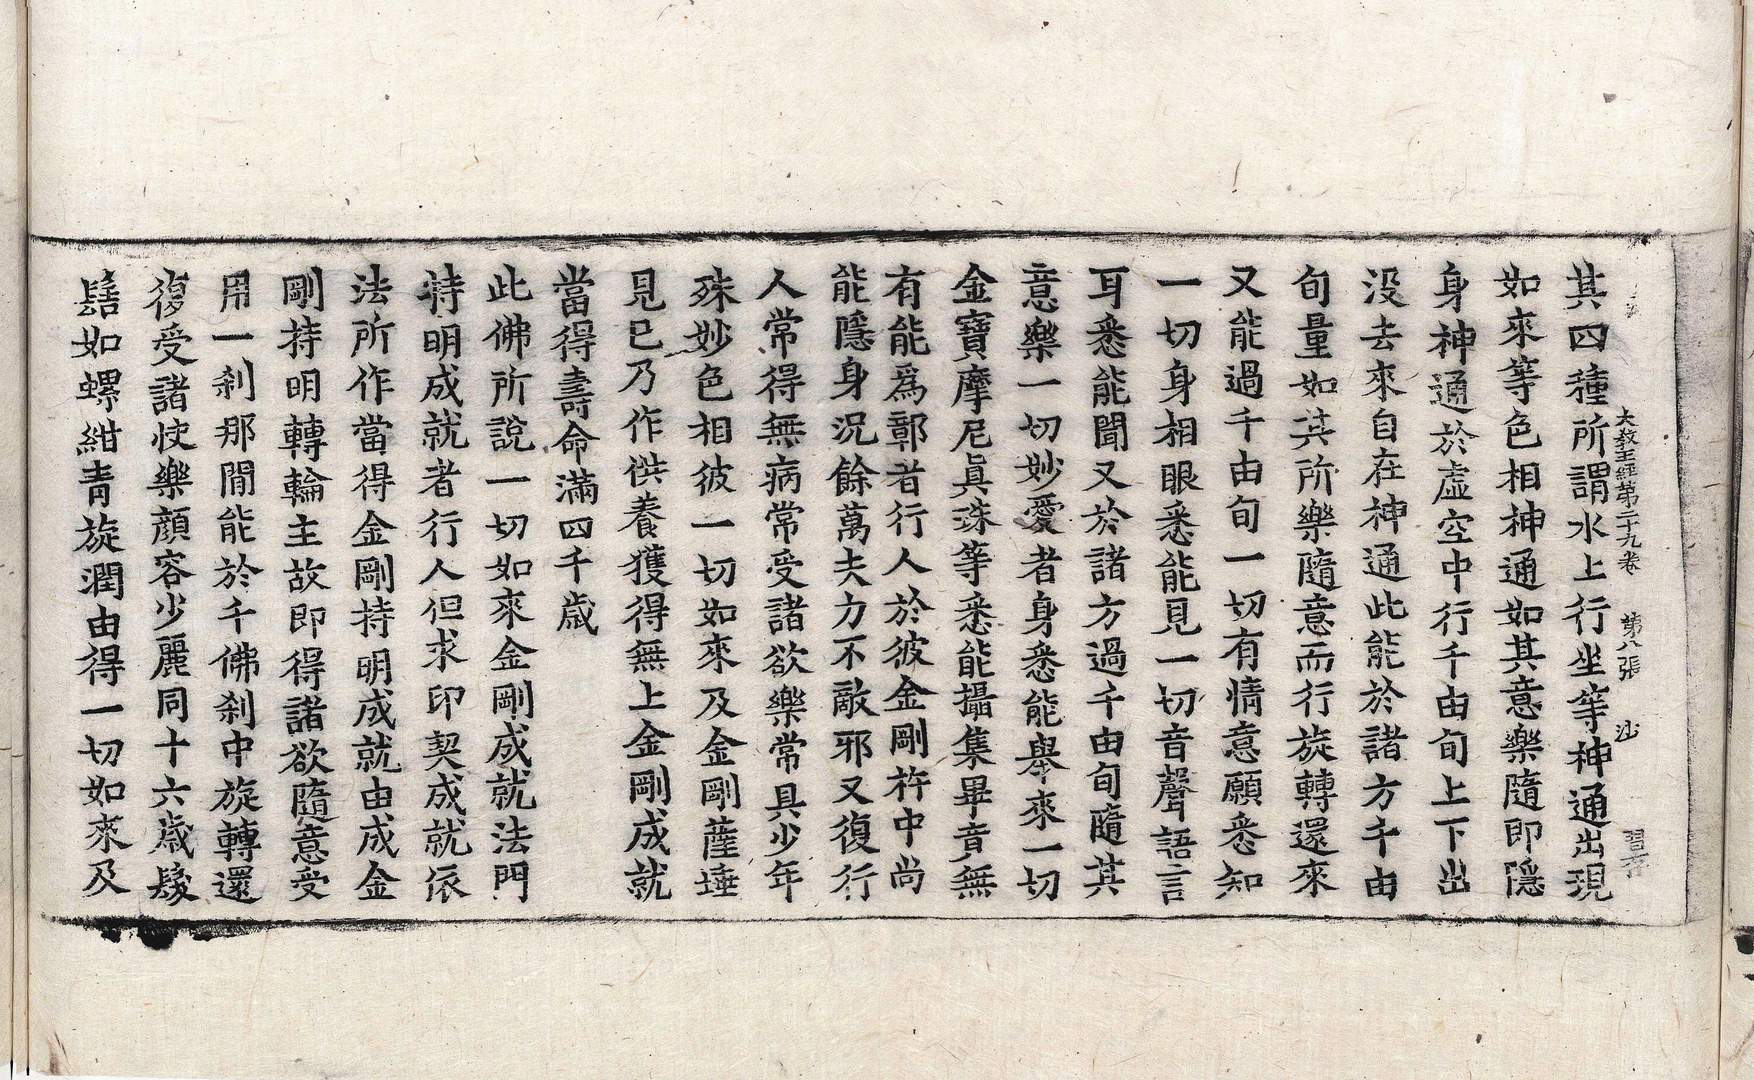 大教王經第二十九卷 第八張 沙
其四種所謂水上行坐等神通出現
如來等色相神通如其意樂隨即隱
身神通於虛空中行千由旬上下出
没去來自在神通此能於諸方千由
旬量如其所樂隨意而行旋轉還來
又能過千由旬一切有情意願悉知
一切身相眼悉能見一切音聲語言
耳悉能聞又於諸方過千由旬隨其
意樂一切妙愛者身悉能舉來一切
金寶摩尼真珠等悉能攝集畢竟無
有能爲鄣者行人於彼金剛杵中尚
能隱身況餘萬夫力不敵邪又復行
人常得無病常受諸欲樂常具少年
殊妙色相彼一切如來及金剛薩埵
見已乃作供養獲得無上金剛成就
當得壽命滿四千歲
此佛所說一切如來金剛成就法門
持明成就者行人但求印契成就依
法所作當得金剛持明成就由成金
剛持明轉輪主故即得諸欲隨意受
用一剎那間能於千佛剎中旋轉還
復受諸快樂顏容少麗同十六歲髮
髻如螺紺青旋潤由得一切如來及